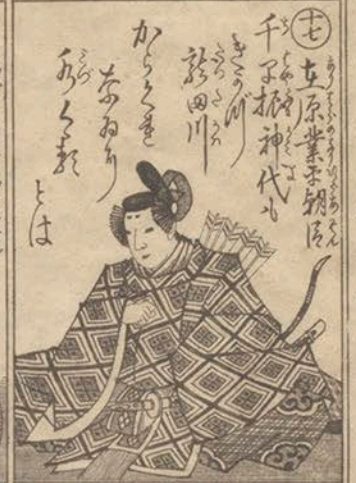 十七
在原業平朝臣
千早振神代も
きかず
龍田川
からくれ
なゐに
水くゝる
とは